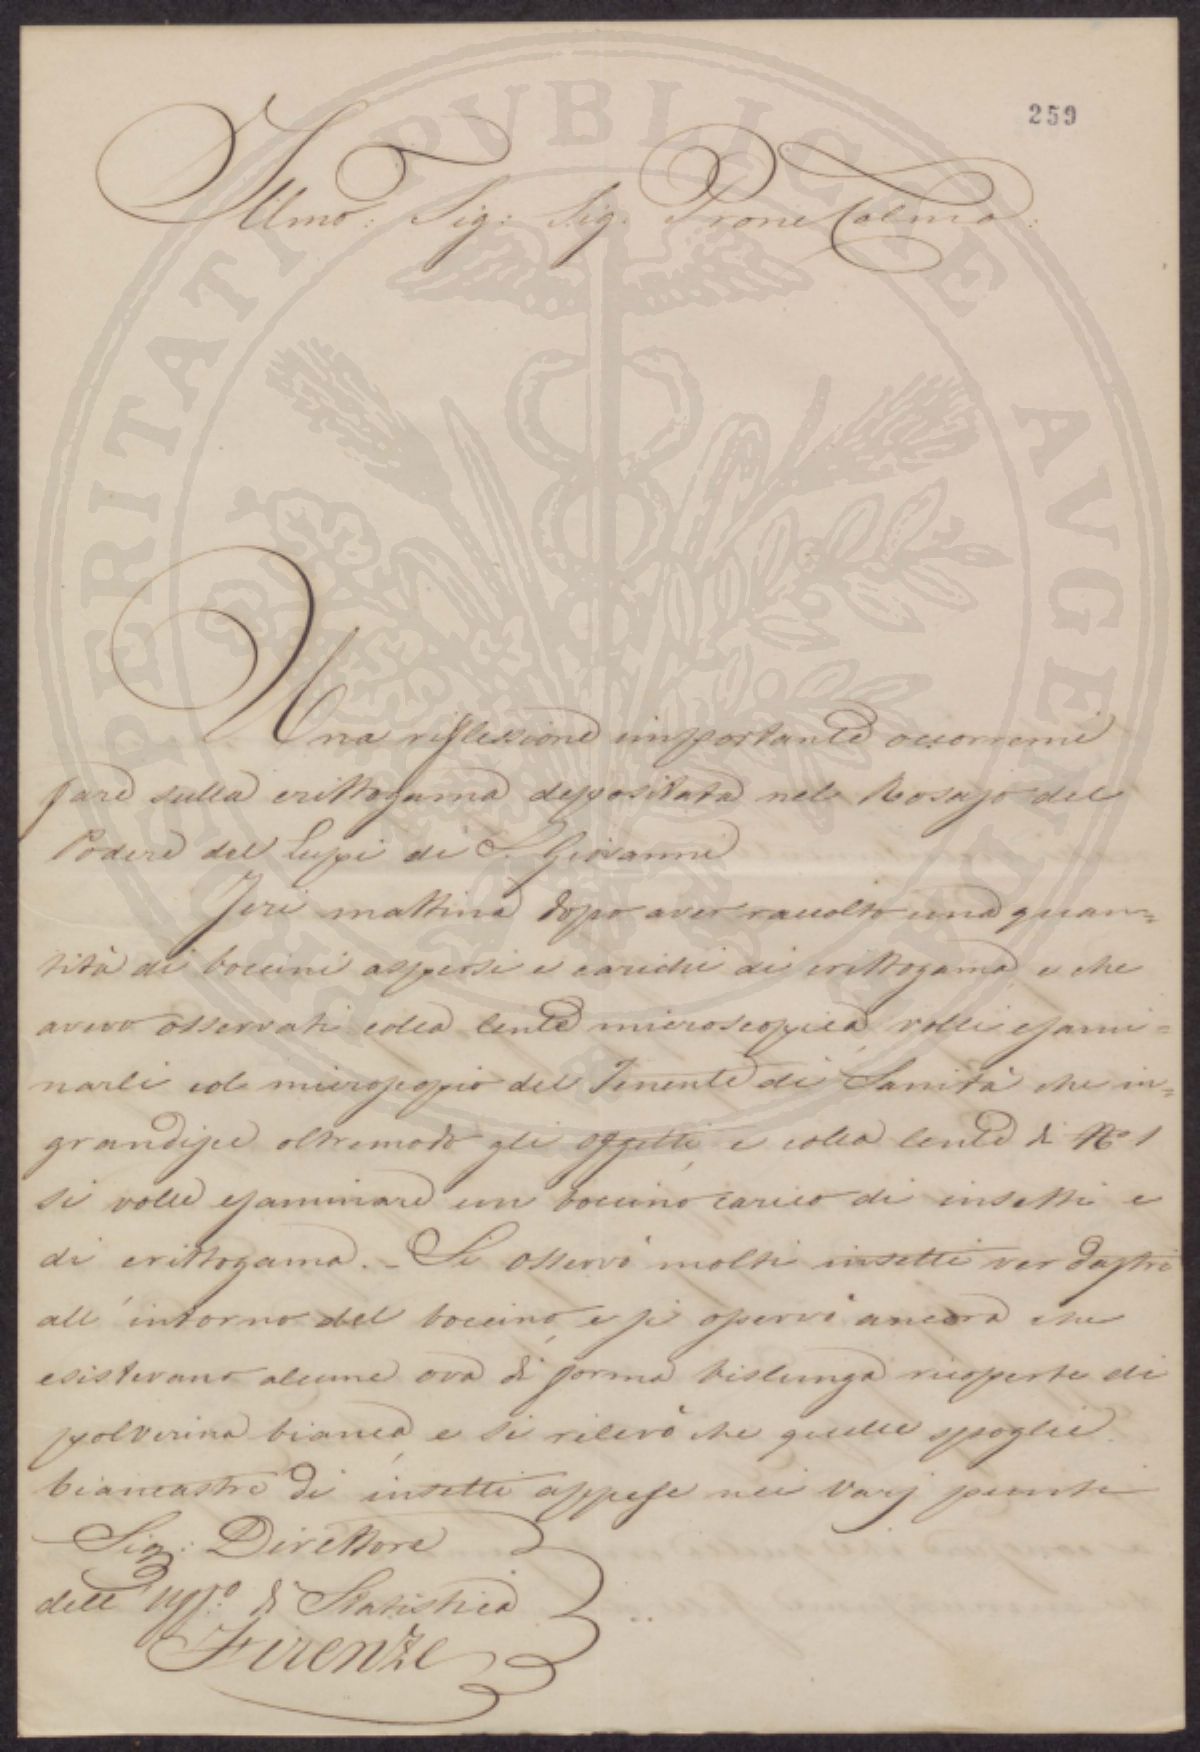 259
Illmo: Sig: Sig: Prone Colmo:
Una riflessione importante occorremi
fare sulla crittogama depositata nel Rosajo del
Podere del Lupi di S. Giovanni
Jeri mattina dopo aver raccolto una quan=
tità di boccini aspersi e carichi di crittogama, e che
avevo osservati colla lente microscopica, volli esami=
narli col microscopio del Tenente di Sanità che in=
grandisce oltremodo gli oggetti, e colla lente di No 1
si volle esaminare un boccino carico di insetti e
di crittogama. - Si osservò molti insetti verdastri
all'intorno del boccino, e si osservò ancora che
esistevano alcune ova di forma bislunga ricoperte di
polverina bianca, e si rilevò che quelle spoglie
biancastre di insetti appese nei varj punti
Sig: Direttore
dell'Uffo. di Statistica
Firenze
PROSPERITATI PVBLICAE AVGENDAE